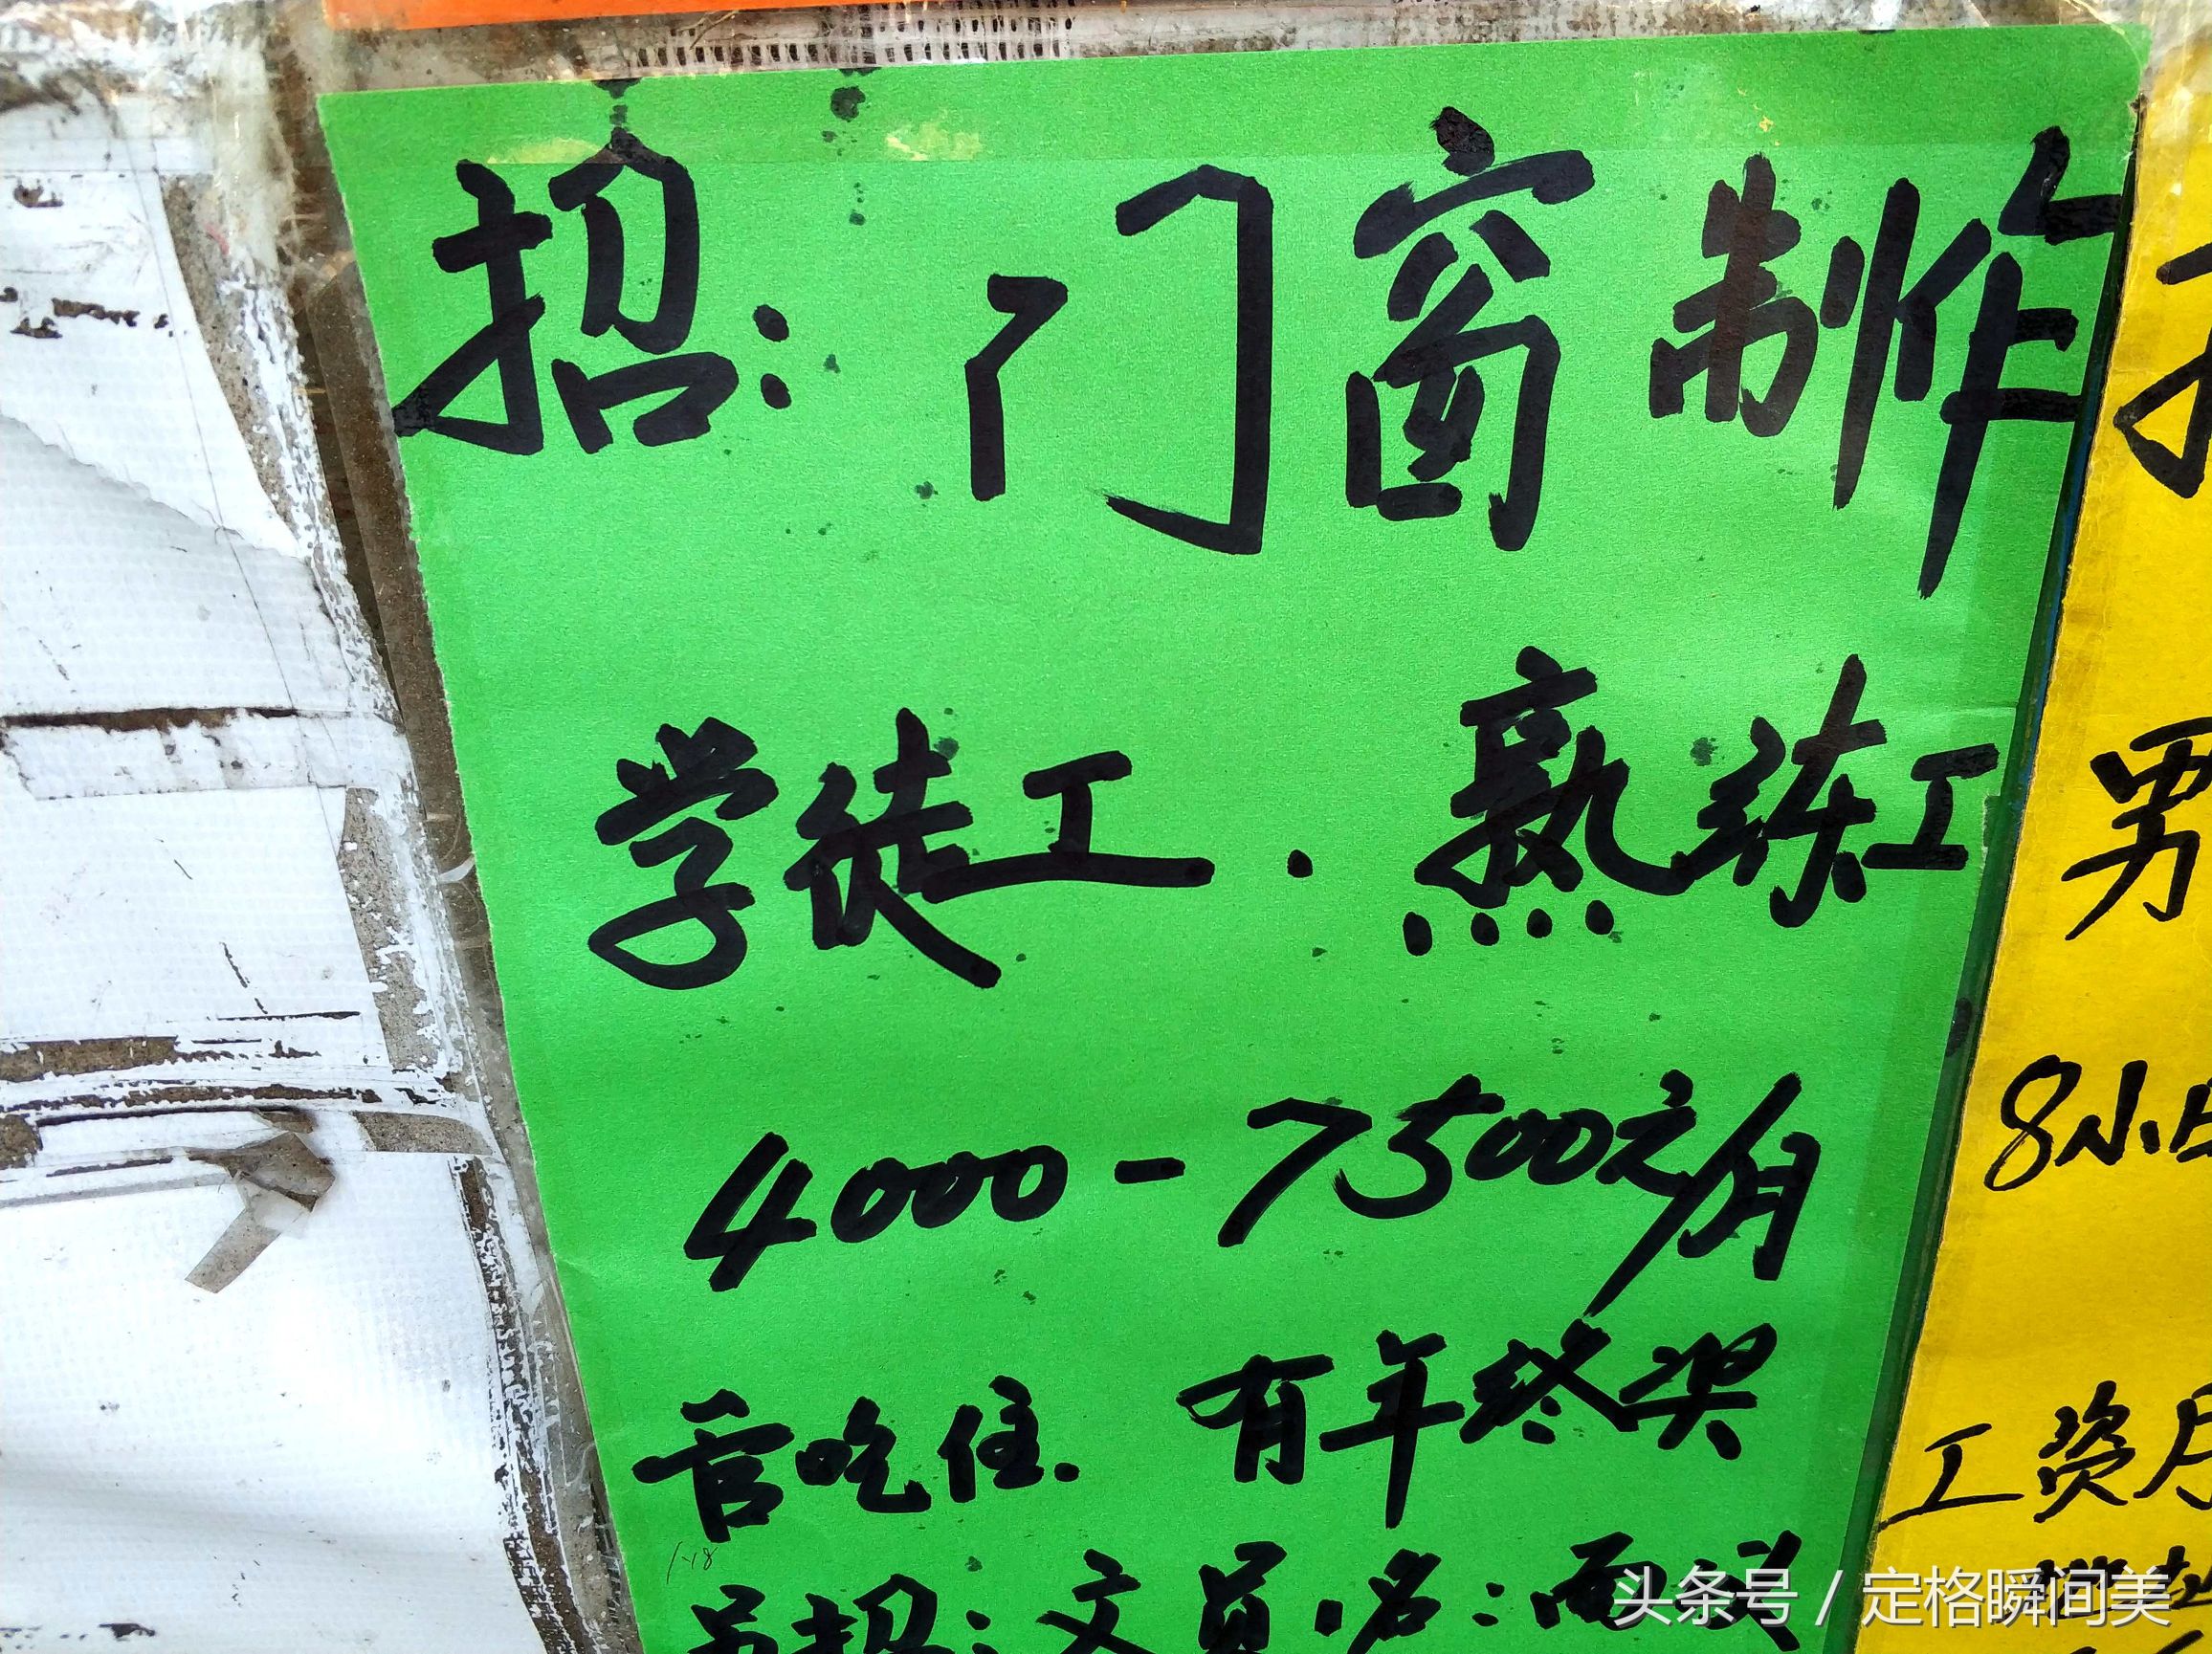 招：门窗制作
学徒工．熟练工
4000-7500元/月
官吃住．有年终奖
1-18
另招：文员．名：面谈
男
8小时
工资月
头条号 / 定格瞬间美